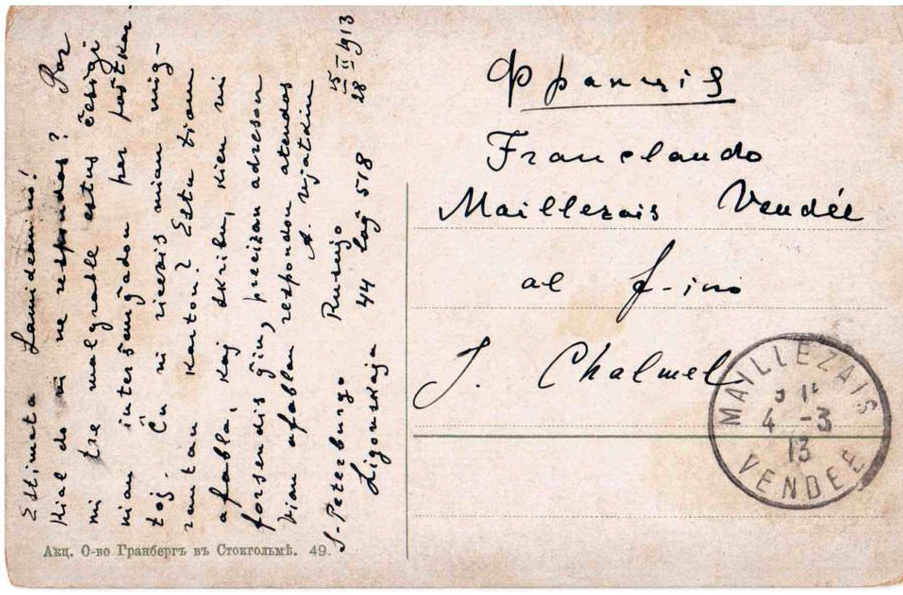 Estimata Samideanino!
Kial do vi ne respondas? Por
mi tre malgrable estus ĉesigi
nian interŝanĝadon per poŝtkar-
toj. Ĉu vi ricevis mian mig-
rantan karton? Estu tiom
afabla, kaj skribu, kien vi
forsendis ĝin, precizan adreson
Vian afablan respondon atendas
A.
S-Peterburgo Rusujo 15/28 II 1913
Ligovskaja 44 loĝ 518
Акц. О-во Гранбергъ въ Стокгольмѣ. 49.
Франція
Franclando
Maillezais Vendée
al f-ino
J. Chalmel
MAILLEZAIS
4 -3
13
VENDEE